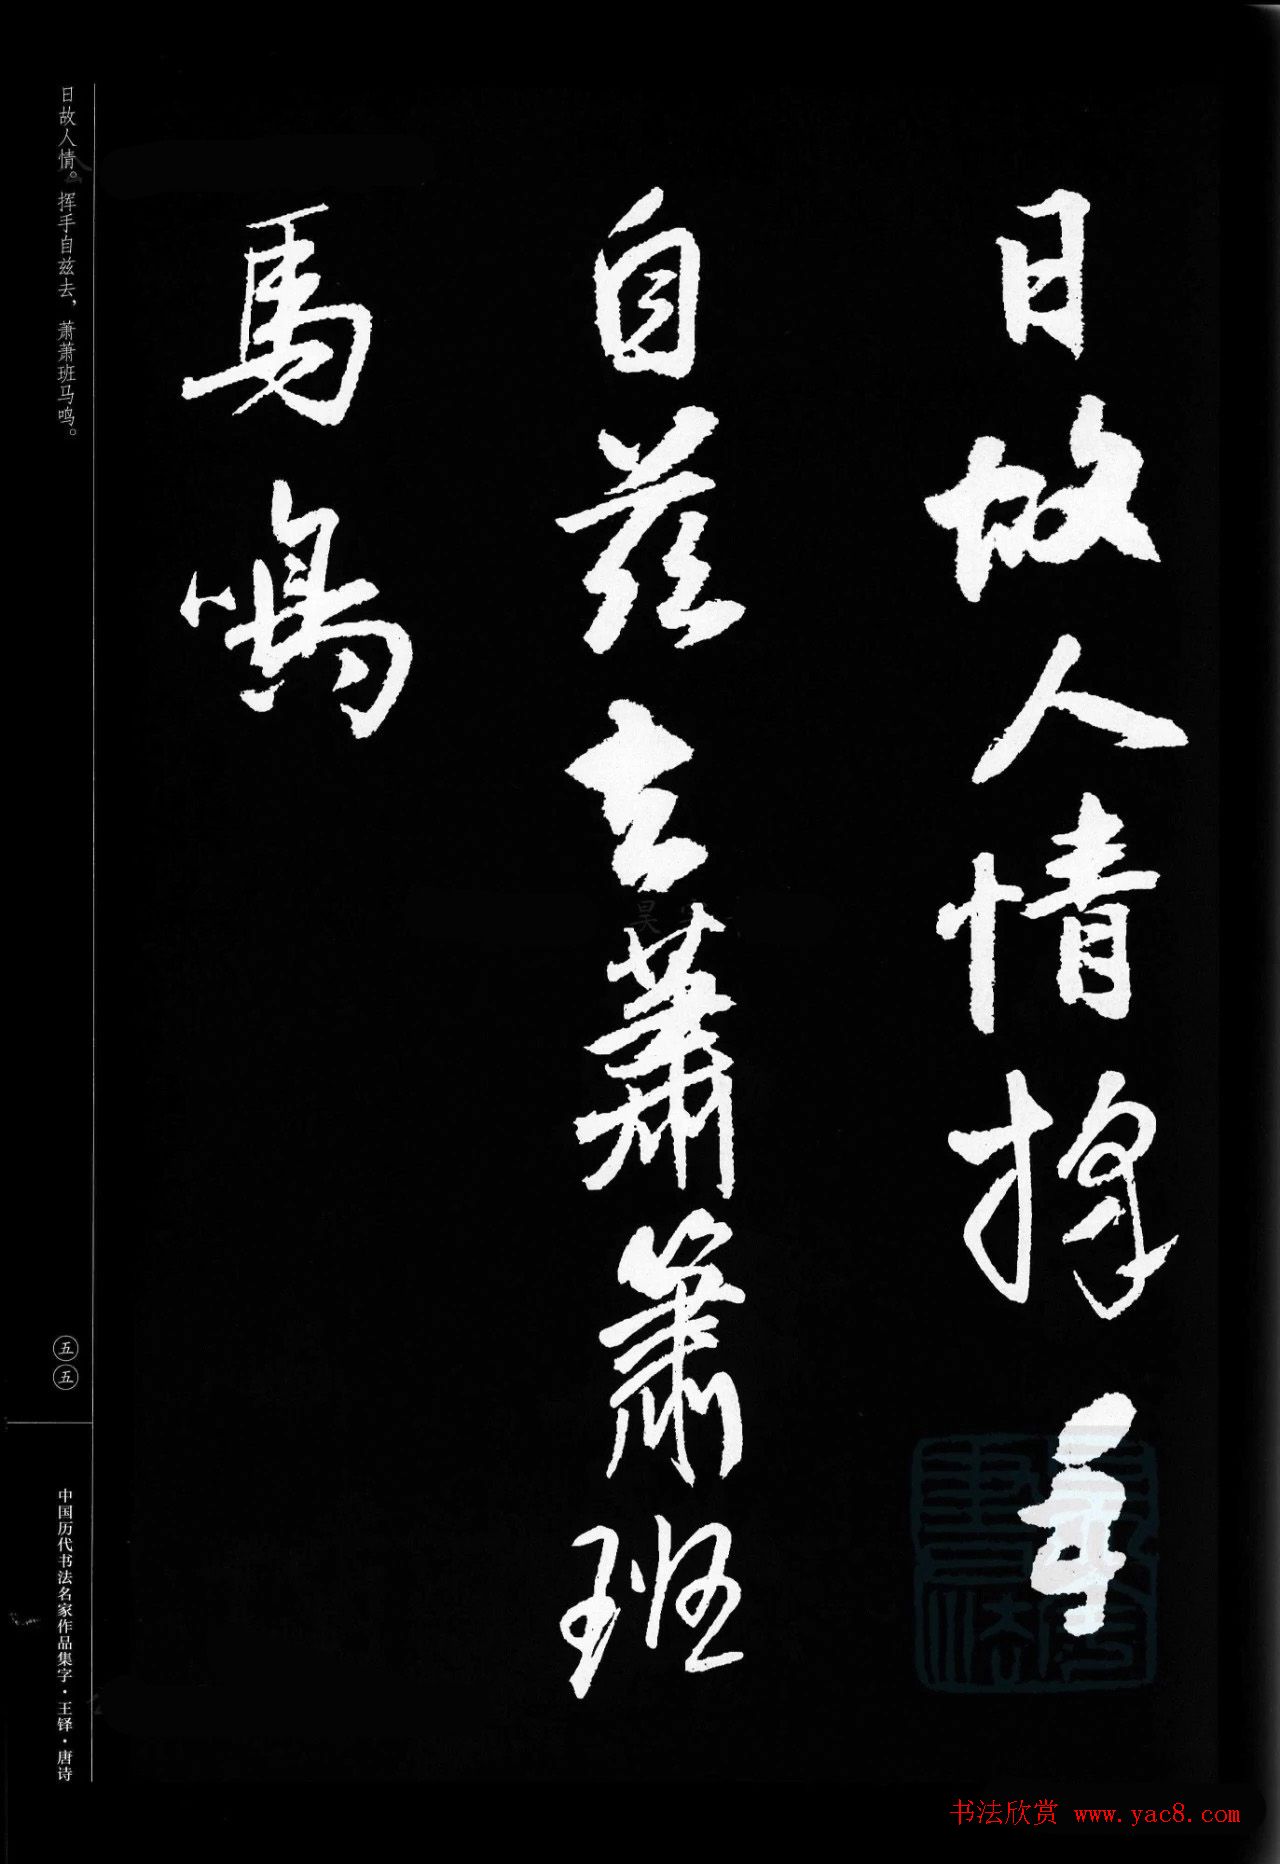 日故人情挥手
自兹去蕭蕭班
馬鳴
日故人情。挥手自兹去，萧萧班马鸣。
五五
中国历代书法名家作品集字·王铎·唐诗
书法欣赏 www.yac8.com